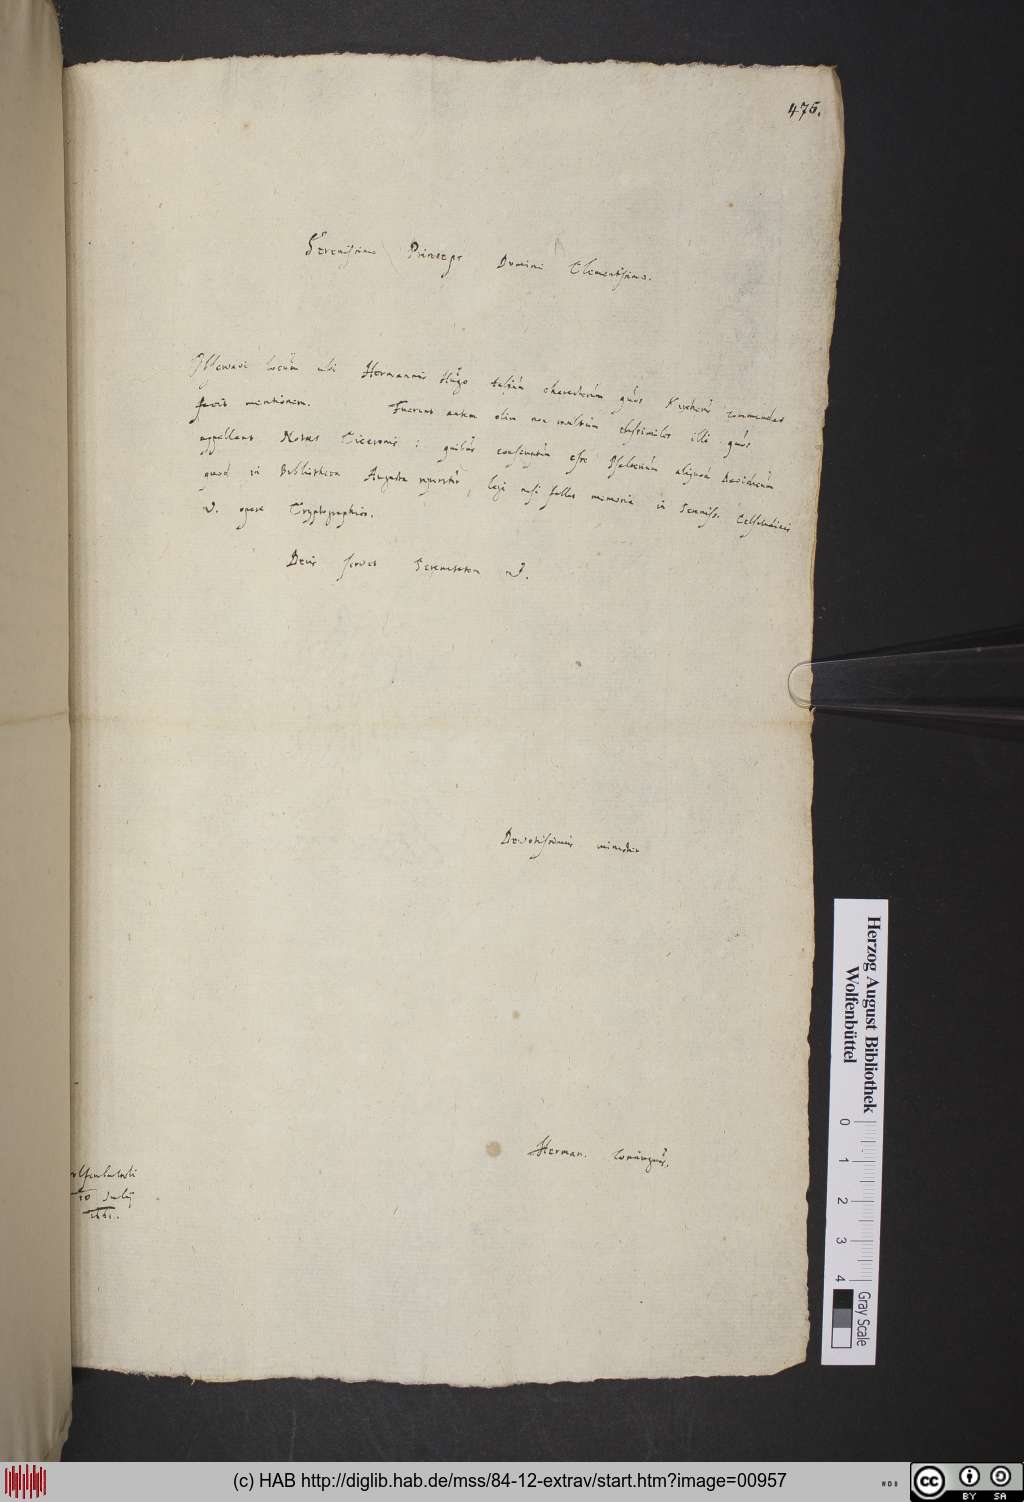 476.
Serenissime Princeps Domine Clementissime.
Observavi locum ubi Hermannus Hugo talium characterum quos Kircherus commendat
facit mentionem. Fuerunt autem olim non multum absimiles illi quos
appellant Notas Ciceronis: quibus conscriptum esse Psalterium aliquod Davidicum
quod in Bibliotheca Augusta reperitur, legi nisi fallor memoria in Sereniss. Celsitudinis
V. opere Cryptographico.
Deus servet Serenitatem V.
Devotissimus
Herman. Conringius.
10 Julij
1661.
Herzog August Bibliothek
Wolfenbüttel
0 1 2 3 4
Gray Scale
(c) HAB http://diglib.hab.de/mss/84-12-extrav/start.htm?image=00957
WDB
cc BY SA